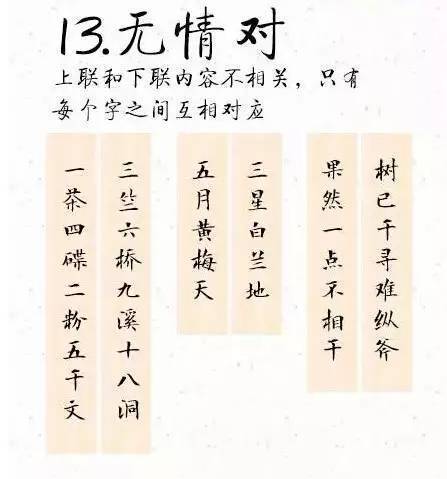 13.无情对
上联和下联内容不相关，只有
每个字之间互相对应
树已千寻难纵斧
果然一点不相干
三星白兰地
五月黄梅天
三竺六桥九溪十八洞
一茶四碟二粉五千文